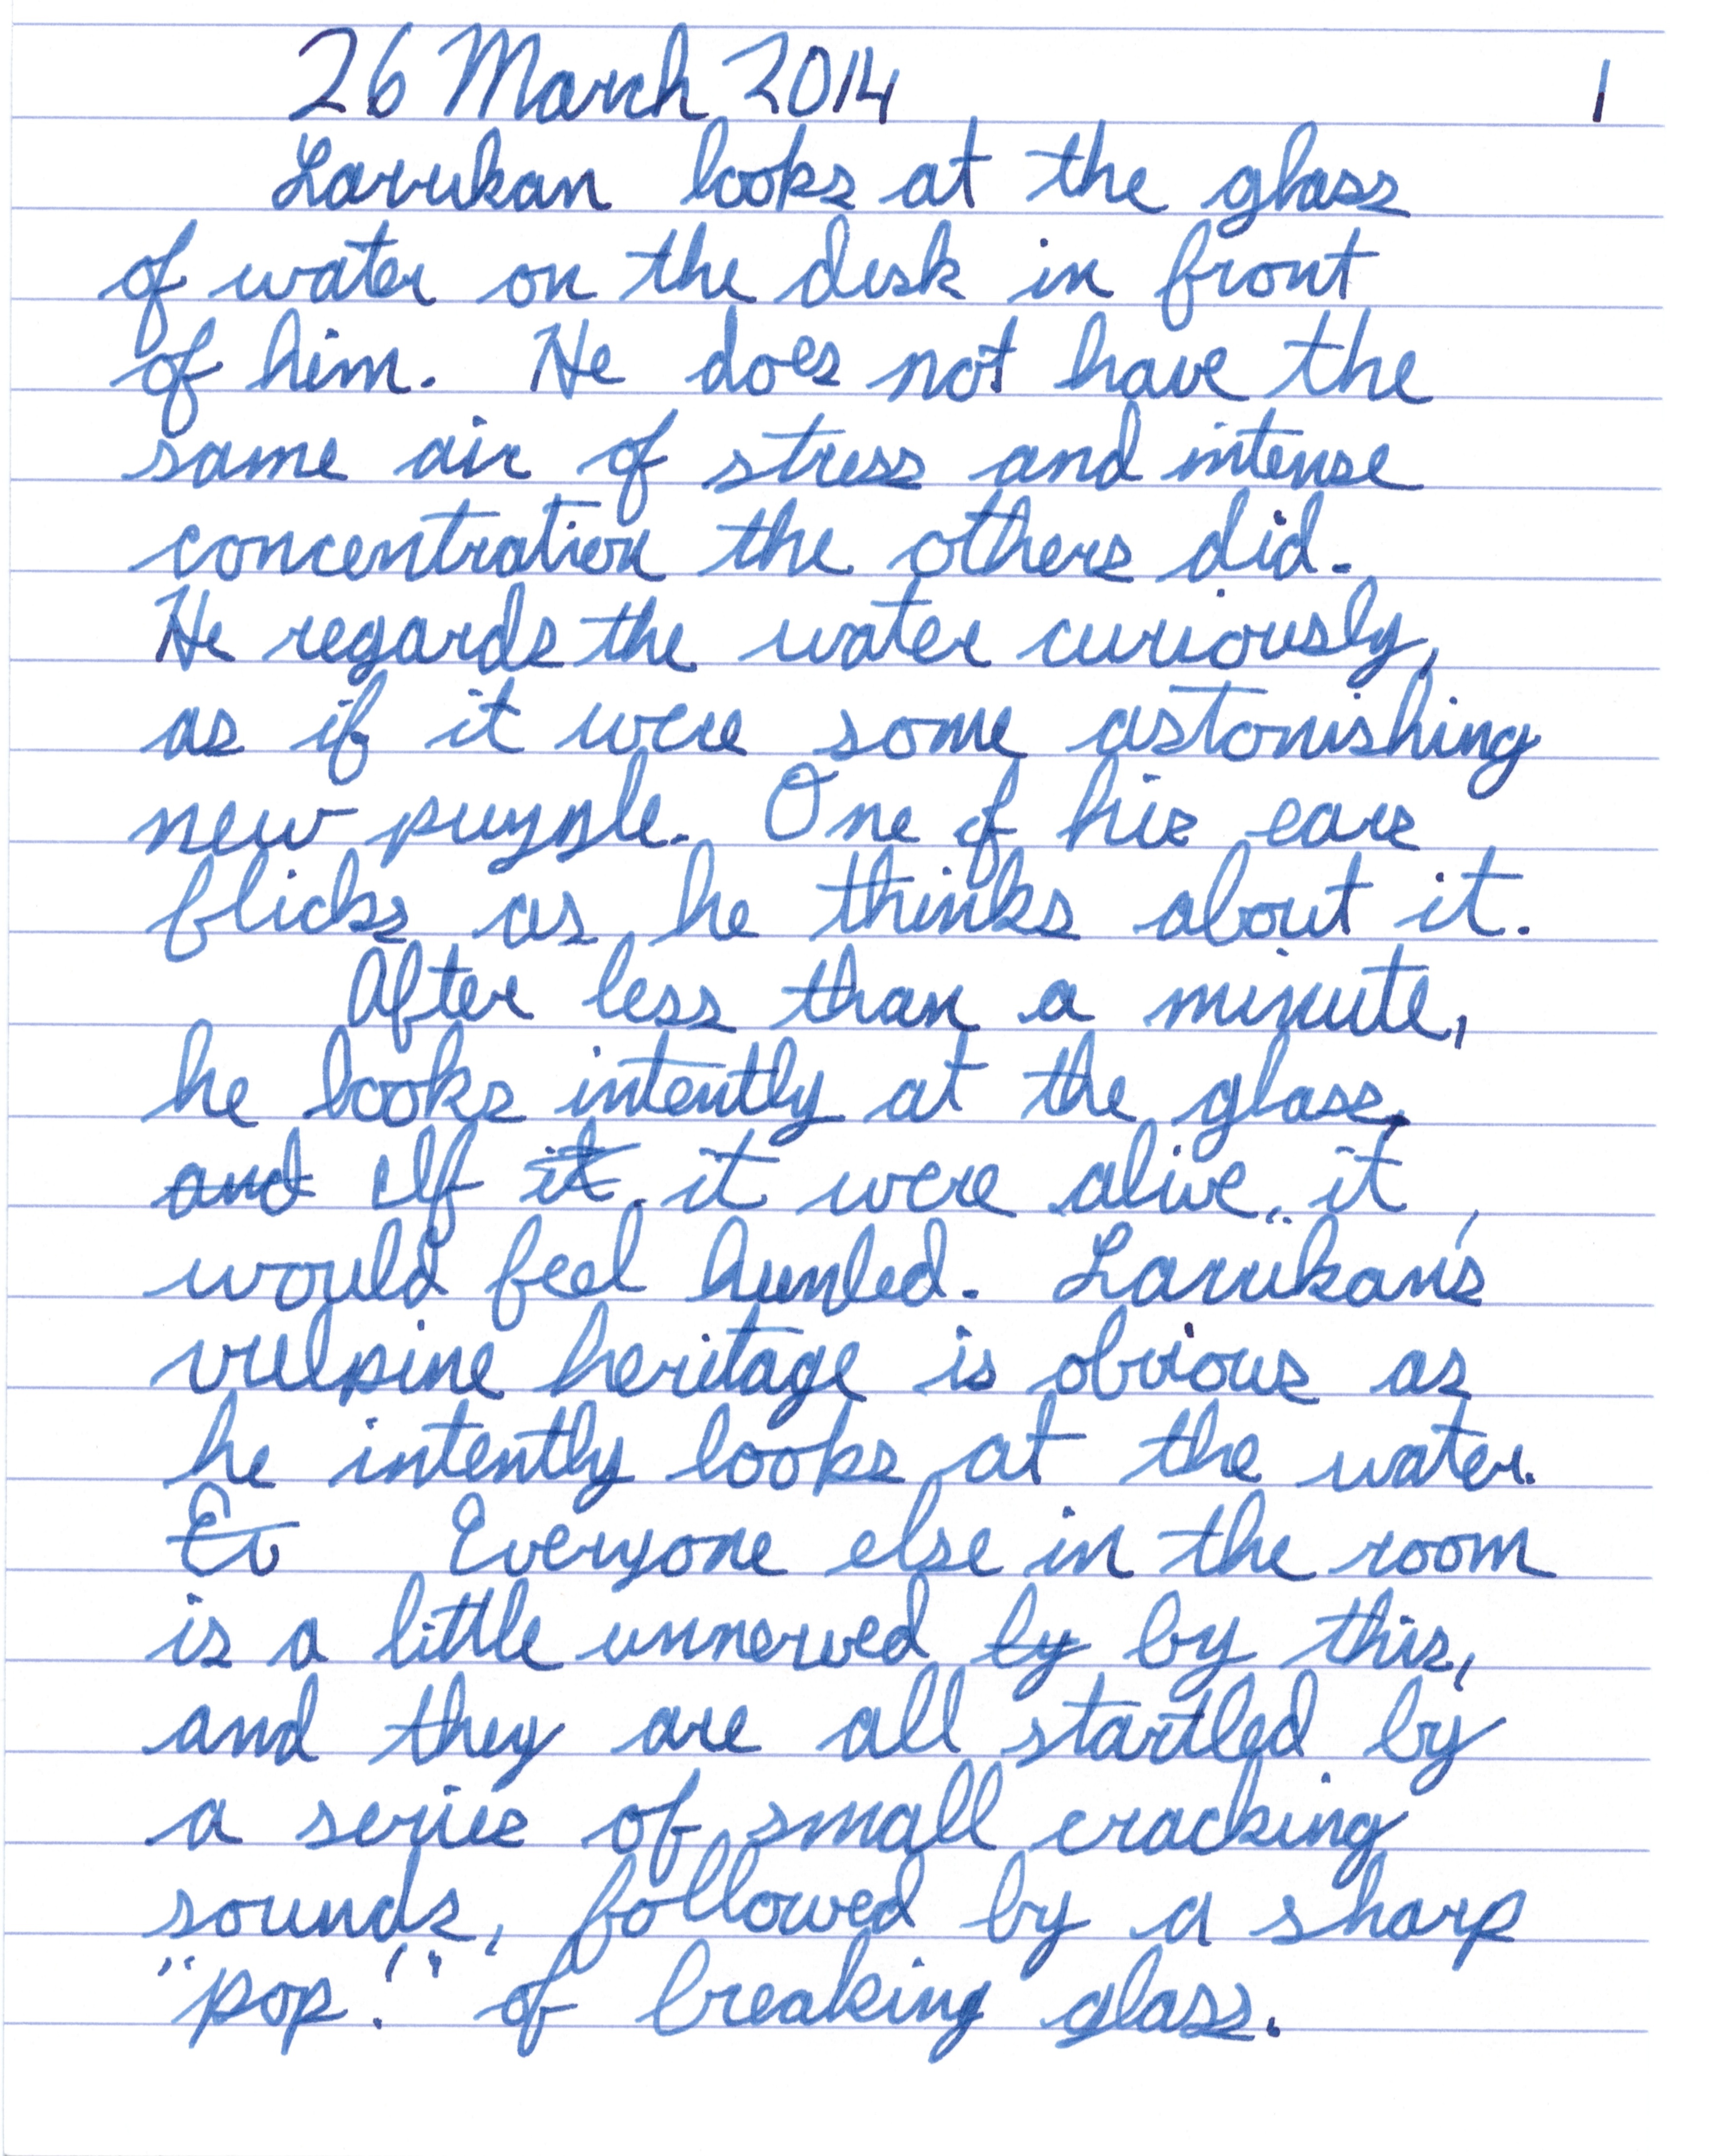 26 March 2014 1
Larukan looks at the glass
of water on the desk in front
of him. He does not have the
same air of stress and intense
concentration the others did.
He regards the water curiously,
as if it were some astonishing
new puzzle. One of his ears
flicks as he thinks about it.
After less than a minute,
he looks intently at the glass.
and If it it were alive, it
would feel hunted. Larukan's
vulpine heritage is obvious as
he intently looks at the water.
Ev Everyone else in the room
is a little unnerved by by this,
and they are all startled by
a series of small cracking
sounds, followed by a sharp
"pop!" of breaking glass.